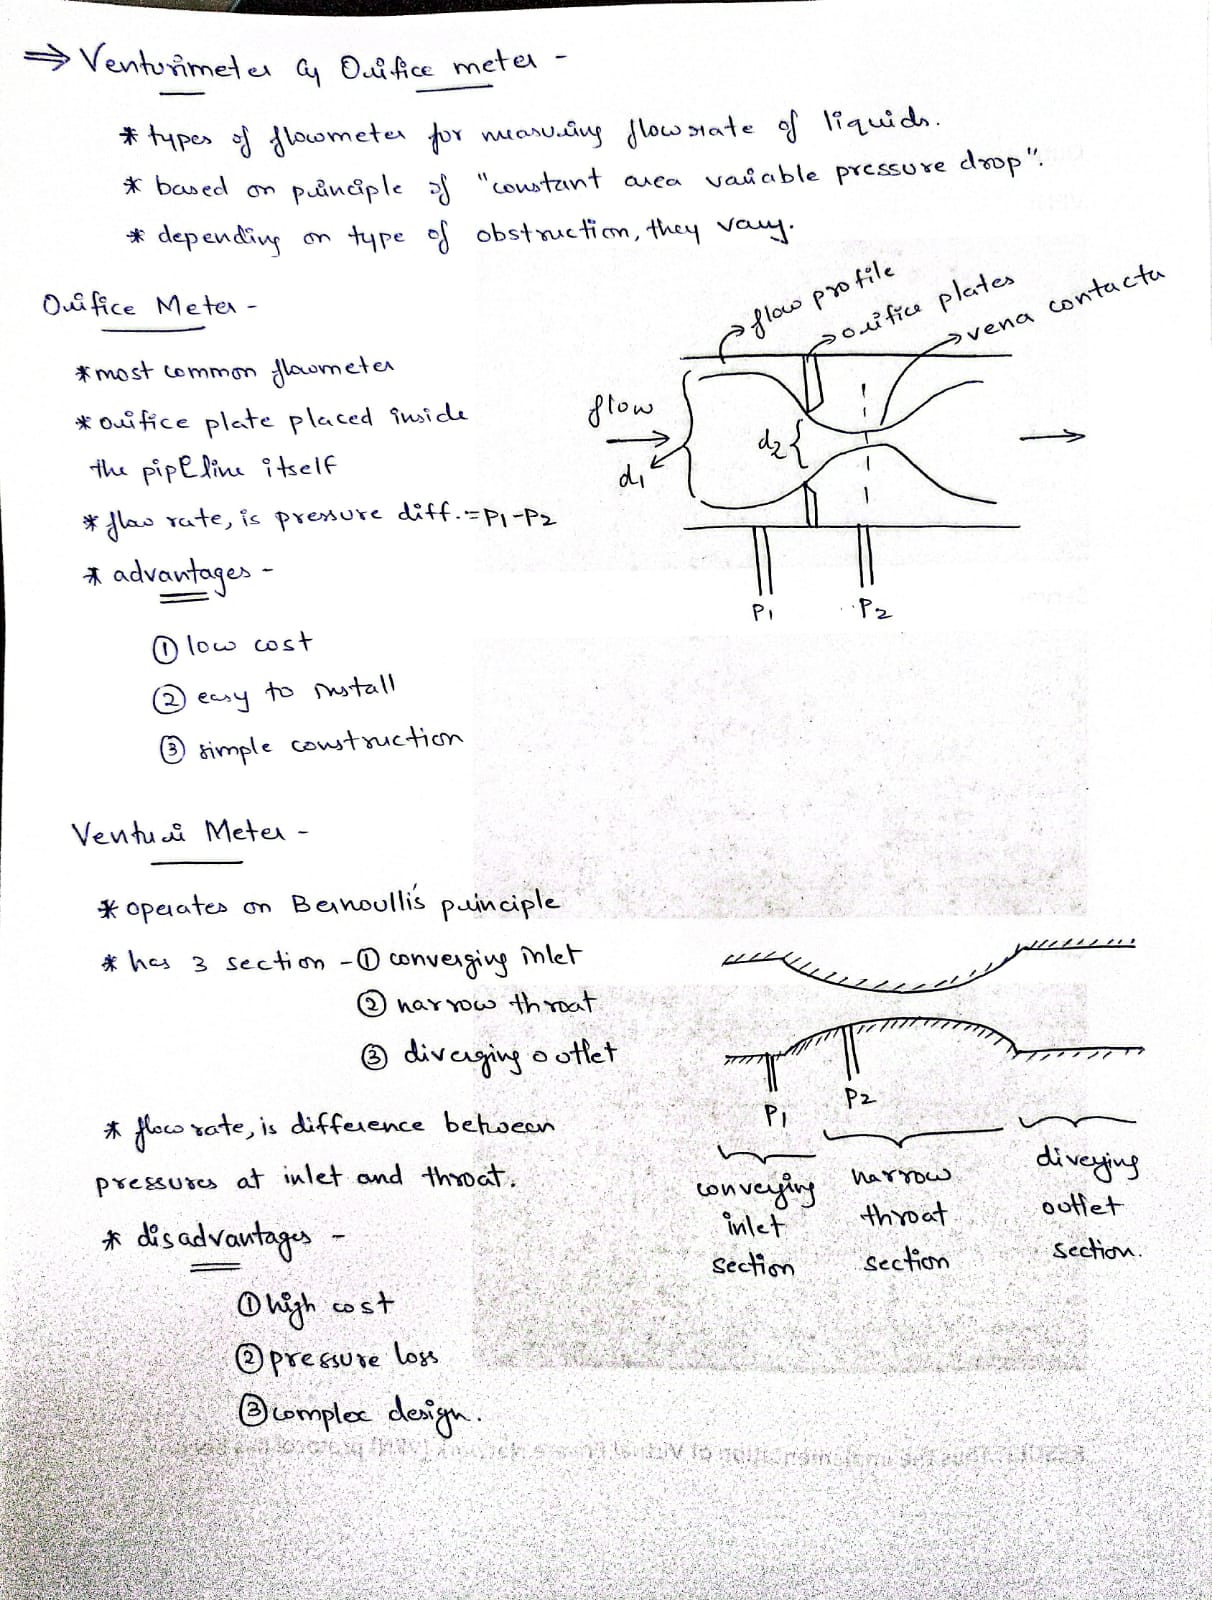 ⇒ Venturimeter & Orifice meter -
* types of flowmeter for measuring flow rate of liquids.
* based on principle of "constant area variable pressure drop".
* depending on type of obstruction, they vary.
Orifice Meter -
* most common flowmeter
* orifice plate placed inside
the pipeline itself
* flow rate, is pressure diff. = P1-P2
* advantages -
① low cost
② easy to install
③ simple construction
flow profile
orifice plates
vena contacta
flow
d1
d2
P1
P2
Venturi Meter -
* operates on Bernoulli's principle
* has 3 section - ① converging inlet
② narrow throat
③ diverging outlet
* flow rate, is difference between
pressures at inlet and throat.
* disadvantages -
① high cost
② pressure loss
③ complex design.
P1
P2
converging
inlet
section
narrow
throat
section
diverging
outlet
section.